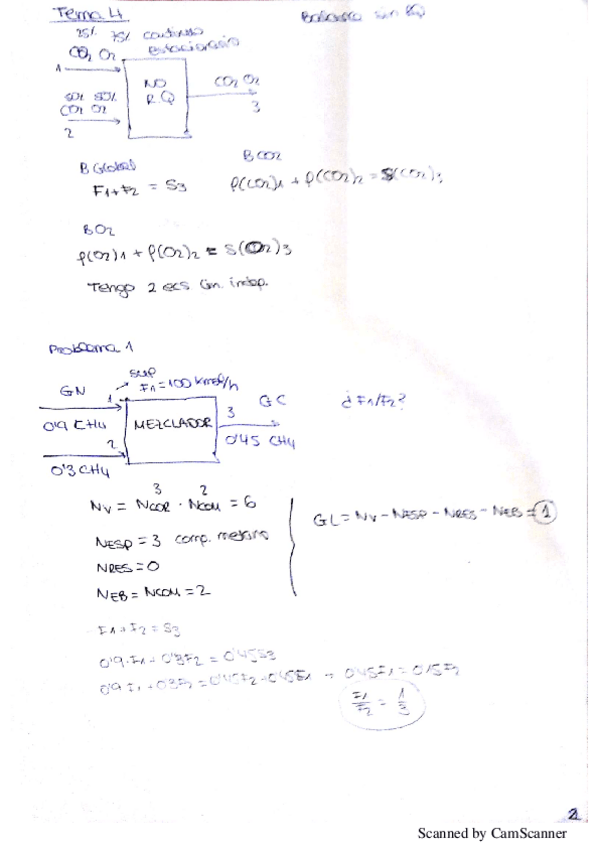 Tema 4
Balances sin RQ
25% 75% continuo
CO2 O2 Estacionario
1
NO
R.Q
CO2 O2
3
50% 50%
CO2 O2
2
B Global
F1+F2 = S3
B CO2
f(CO2)1 + f(CO2)2 = S(CO2)3
B O2
f(O2)1 + f(O2)2 = S(O2)3
Tengo 2 ecs lin. indep.
Problema 1
GN
sup
1 F1=100 kmol/h
3 GC
¿F1/F2?
0'9 CH4
MEZCLADOR
0'45 CH4
2
0'3 CH4
3 2
NV = NCOR · NCOM = 6
GL = NV - NESP - NRES - NEB = 1
NESP = 3 comp. metano
NRES = 0
NEB = NCOM = 2
F1 + F2 = S3
0'9·F1 + 0'3F2 = 0'45S3
0'9F1 + 0'3F2 = 0'45F2 + 0'45F1 → 0'45F1 = 0'15F2
F1/F2 = 1/3
2
Scanned by CamScanner